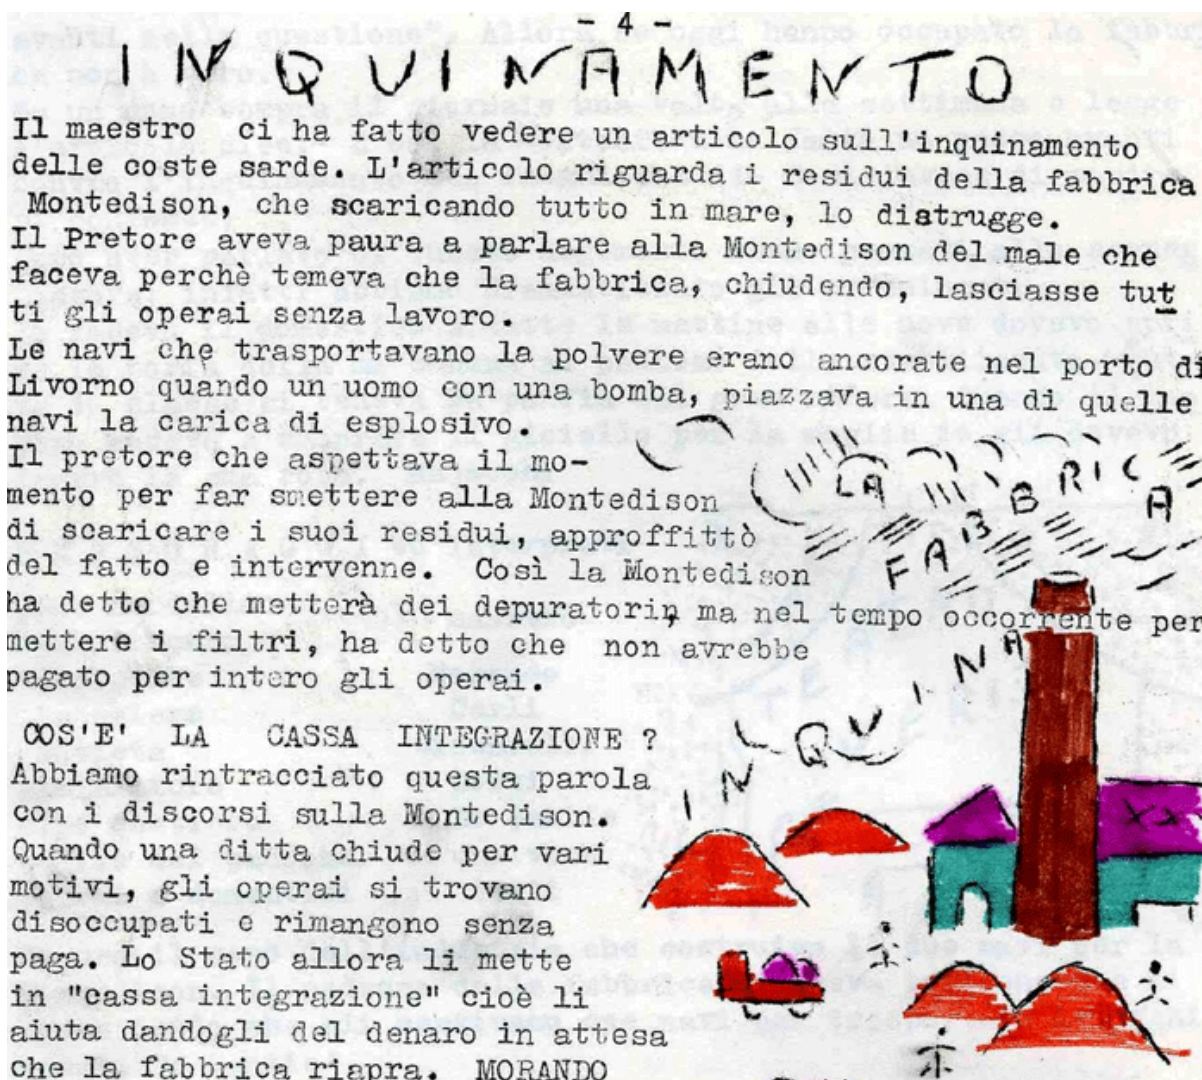 - 4 -
INQUINAMENTO
Il maestro ci ha fatto vedere un articolo sull'inquinamento
delle coste sarde. L'articolo riguarda i residui della fabbrica
Montedison, che scaricando tutto in mare, lo distrugge.
Il Pretore aveva paura a parlare alla Montedison del male che
faceva perchè temeva che la fabbrica, chiudendo, lasciasse tut
ti gli operai senza lavoro.
Le navi che trasportavano la polvere erano ancorate nel porto di
Livorno quando un uomo con una bomba, piazzava in una di quelle
navi la carica di esplosivo.
Il pretore che aspettava il mo-
mento per far smettere alla Montedison
di scaricare i suoi residui, approffittò
del fatto e intervenne. Così la Montedison
ha detto che metterà dei depuratori, ma nel tempo occorrente per
mettere i filtri, ha detto che non avrebbe
pagato per intero gli operai.
LA FABBRICA
INQUINA
COS'E' LA CASSA INTEGRAZIONE ?
Abbiamo rintracciato questa parola
con i discorsi sulla Montedison.
Quando una ditta chiude per vari
motivi, gli operai si trovano
disoccupati e rimangono senza
paga. Lo Stato allora li mette
in "cassa integrazione" cioè li
aiuta dandogli del denaro in attesa
che la fabbrica riapra. MORANDO